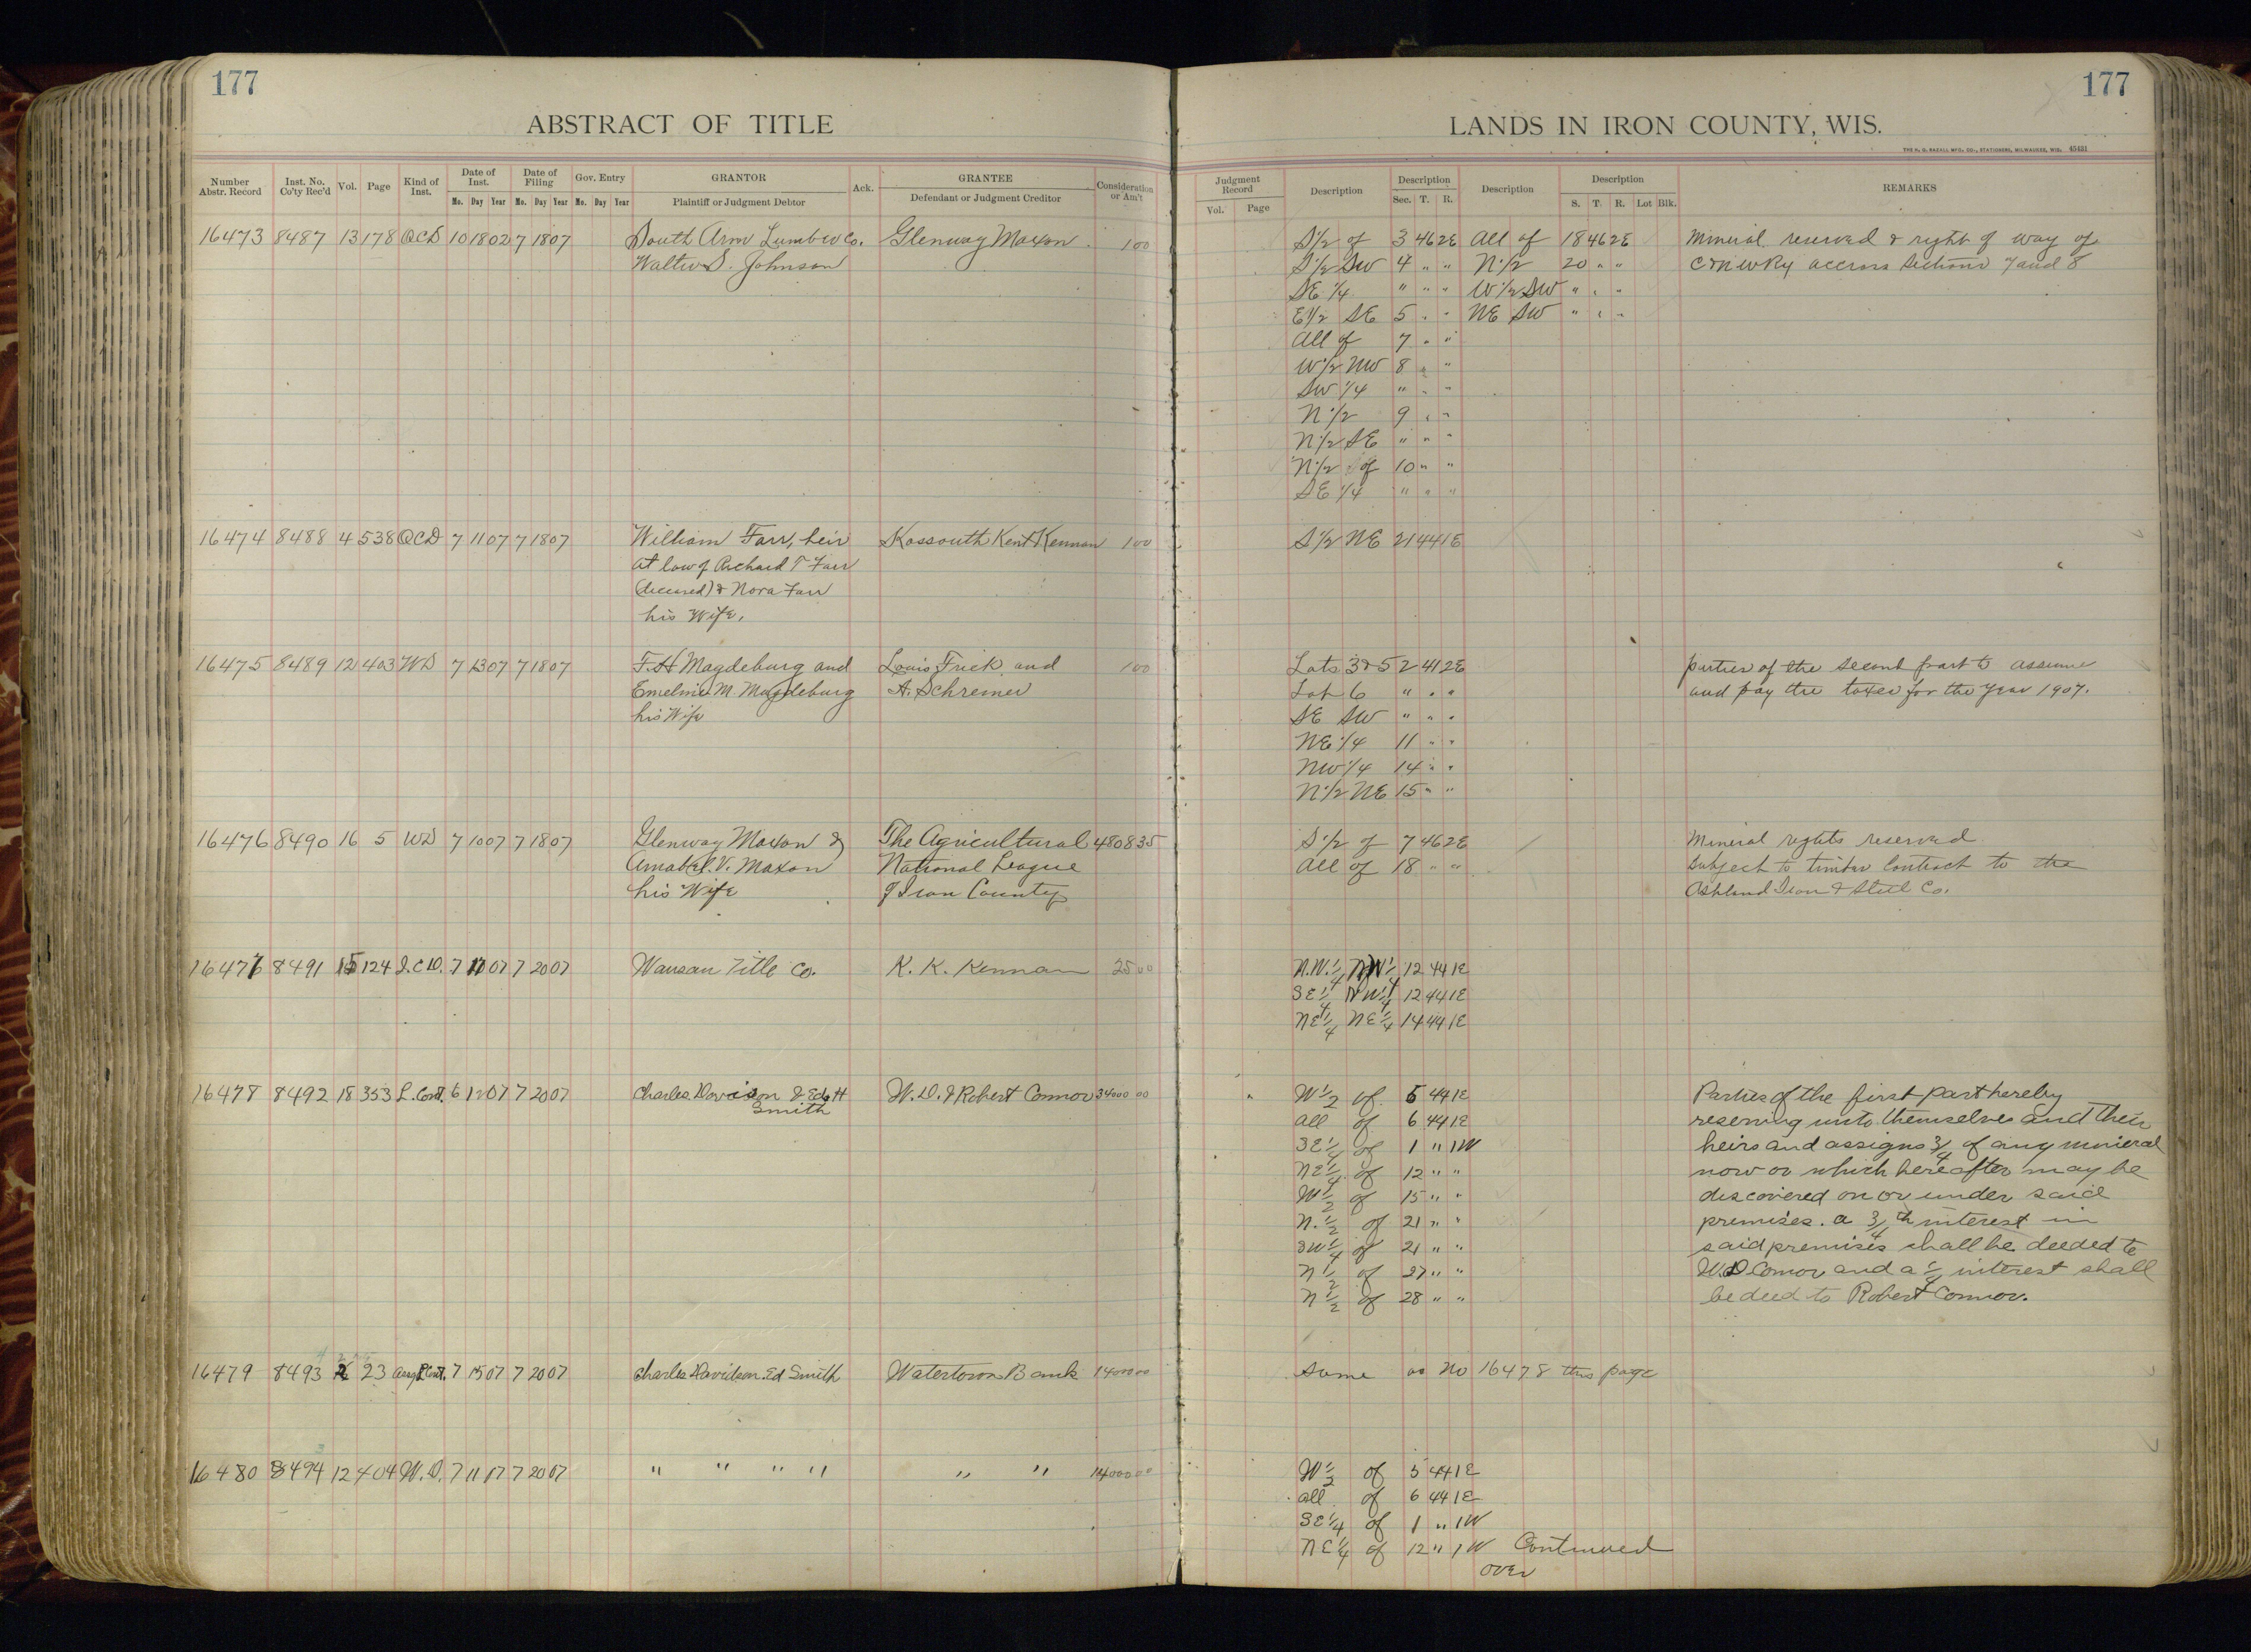 177
ABSTRACT OF TITLE
Number Abstr. Record Inst. No. Co'ty Rec'd Vol. Page Kind of Inst. Date of Inst. Mo. Day Year Date of Filing Mo. Day Year Gov. Entry Mo. Day Year GRANTOR Plaintiff or Judgment Debtor Ack. GRANTEE Defendant or Judgment Creditor Consideration or Am't
16473 8487 13 178 QCD 10 18 02 7 18 07 South Arm Lumber Co. Glenway Maxon 1 00
Walter S. Johnson
16474 8488 4 538 QCD 7 11 07 7 18 07 William Farr, heir Kossouth Kent Kennan 1 00
at law of Richard T Farr
(deceased) & Nora Farr
his Wife.
16475 8489 12 403 WD 7 13 07 7 18 07 F. H Magdeburg and Louis Frick and 1 00
Emeline M. Magdeburg A. Schremer
his Wife
16476 8490 16 5 WD 7 10 07 7 18 07 Glenway Maxon & The Agricultural 4808 35
Annabel V. Maxon National League
his Wife of Iron County
16477 8491 15 124 Q.C.D. 7 17 07 7 20 07 Wausau Title Co. K. K. Kennan 25 00
16478 8492 15 353 L. Cont. 6 12 07 7 20 07 Charles Davison & Ed. H W. D. & Robert Connor 34000 00
Smith
16479 8493 23 7 15 07 7 20 07 Charles Davidson. Ed Smith Watertown Bank 14000 00
16480 8494 12 404 W.D. 7 11 07 7 20 07 " " " " " " 14000 00
177
LANDS IN IRON COUNTY, WIS.
THE H. G. RAZALL MFG. CO., STATIONERS, MILWAUKEE, WIS. 45431
Judgment Record Vol. Page Description Description Sec. T. R. Description Description S. T. R. Lot Blk. REMARKS
S½ of 3 46 2E All of 18 46 2E Mineral reserved & right of way of
S½ SW 4 " " N½ 20 " " C & NW Ry accross Sections 7 and 8
SE ¼ " " " W½ SW " " "
E½ SE 5 " " NE SW " " "
All of 7 " "
W½ NW 8 " "
SW ¼ " " "
N½ 9 " "
N½ SE " " "
N½ of 10 " "
SE ¼ " " "
S½ NE 21 44 1E
Lots 3 & 5 2 41 2E parties of the second part to assume
Lot 6 " " " and pay the taxes for the year 1907.
SE SW " " "
NE ¼ 11 " "
NW ¼ 14 " "
N½ NE 15 " "
S½ of 7 46 2E Mineral rights reserved
All of 18 " " Subject to timber Contract to the
Ashland Iron & Steel Co.
N.W.¼ NW¼ 12 44 1E
SE¼ NW¼ 12 44 1E
NE¼ NE¼ 14 44 1E
W½ of 5 44 1E Parties of the first part hereby
all of 6 44 1E reserving unto themselves and their
SE¼ of 1 " 1W heirs and assigns ¾ of any mineral
NE¼ of 12 " " now or which hereafter may be
W½ of 15 " " discovered on or under said
N.½ of 21 " " premises. a ¾th interest in
SW¼ of 21 " " said premises shall be deeded to
N½ of 27 " " W.D Connor and a ¼ interest shall
N½ of 28 " " be deed to Robert Connor.
Same as No 16478 this page
W½ of 5 44 1E
all of 6 44 1E
SE¼ of 1 " 1W
NE¼ of 12 " 1W Continued
over